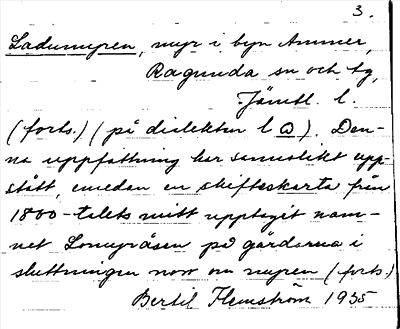 3.
Ladumyren, myr i byn Ammer,
Ragunda sn och tg,
Jämtl. l.
(forts.) (på dialekten l a). Den-
na uppfattning har sannolikt upp-
stått, emedan en skifteskarta från
1800-talets mitt upptagit nam-
net Lomyråsen på gårdarna i
sluttningen norr om myren (forts.)
Bertil Flemström 1935